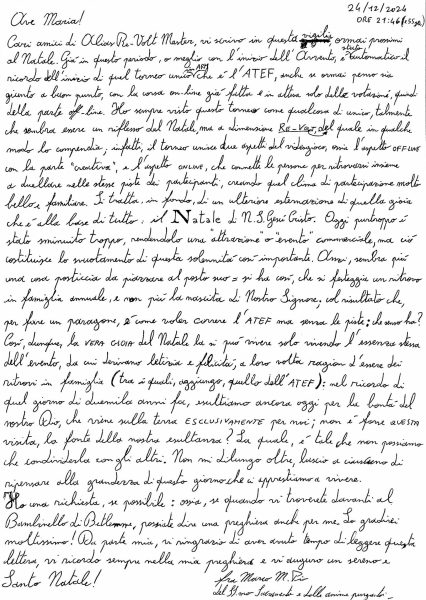 Ave Maria!
24/12/2024
ORE 21:46
Cari amici di Alias Re-Volt Master, vi scrivo in questa vigilia ormai prossimi
al Natale. Già in questo periodo, o meglio con l'inizio dell'Avvento, è stato automatico il
ricordo dell'inizio di quel torneo unico che è l'ATEF, anche se ormai penso sia
giunto a buon punto, con la corsa on-line già fatta e in attesa solo delle votazioni, quindi
della parte off-line. Ho sempre visto questo torneo come qualcosa di unico, talmente
che sembra essere un riflesso del Natale, ma a dimensione Re-Volt, del quale in qualche
modo lo compendia; infatti, il torneo unisce due aspetti del videogioco, ossia l'aspetto OFFLINE
con la parte "creativa", e l'aspetto ONLINE, che connette le persone per ritrovarsi insieme
a duellare nelle stesse piste dei partecipanti, creando quel clima di partecipazione molto
bello e familiare. Si tratta, in fondo, di un ulteriore esternazione di quella gioia
che è alla base di tutto: il Natale di N.S. Gesù Cristo. Oggi purtroppo è
stato sminuito troppo, rendendolo una "attrazione" o "evento" commerciale, ma ciò
costituisce lo snuotamento di questa solennità così importante. Anzi, sembra più
una cosa posticcia da piazzare al posto suo = si ha così, che si festeggia un ritrovo
in famiglia annuale, e non più la nascita di Nostro Signore, col risultato che,
per fare un paragone, è come voler correre l'ATEF ma senza le piste; che senso ha?
Così, dunque, la VERA GIOIA del Natale la si può vivere solo vivendo l'essenza stessa
dell'evento, da cui derivano letizia e felicità, a loro volta ragion d'essere dei
ritrovi in famiglia (tra i quali, aggiungo, quello dell'ATEF): nel ricordo di
quel giorno di duemila anni fa, esultiamo ancora oggi per la bontà del
nostro Dio, che viene sulla terra ESCLUSIVAMENTE per noi; non è forse QUESTA
visita, la fonte della nostra esultanza? La quale, è tale che non possiamo
che condividerla con gli altri. Non mi dilungo oltre, lascio a ciascuno di
ripensare alla grandezza di questo giorno che ci apprestiamo a vivere.
Ho una richiesta, se possibile: ossia, se quando vi troverete davanti al
Bambinello di Betlemme, possiate dire una preghiera anche per me. Lo gradirei
moltissimo! Da parte mia, vi ringrazio di aver avuto tempo di leggere questa
lettera, vi ricordo sempre nella mia preghiera e vi auguro un sereno e
Santo Natale!
Fra Marco M. Pio
del SS.mo Sacramento e delle anime purganti